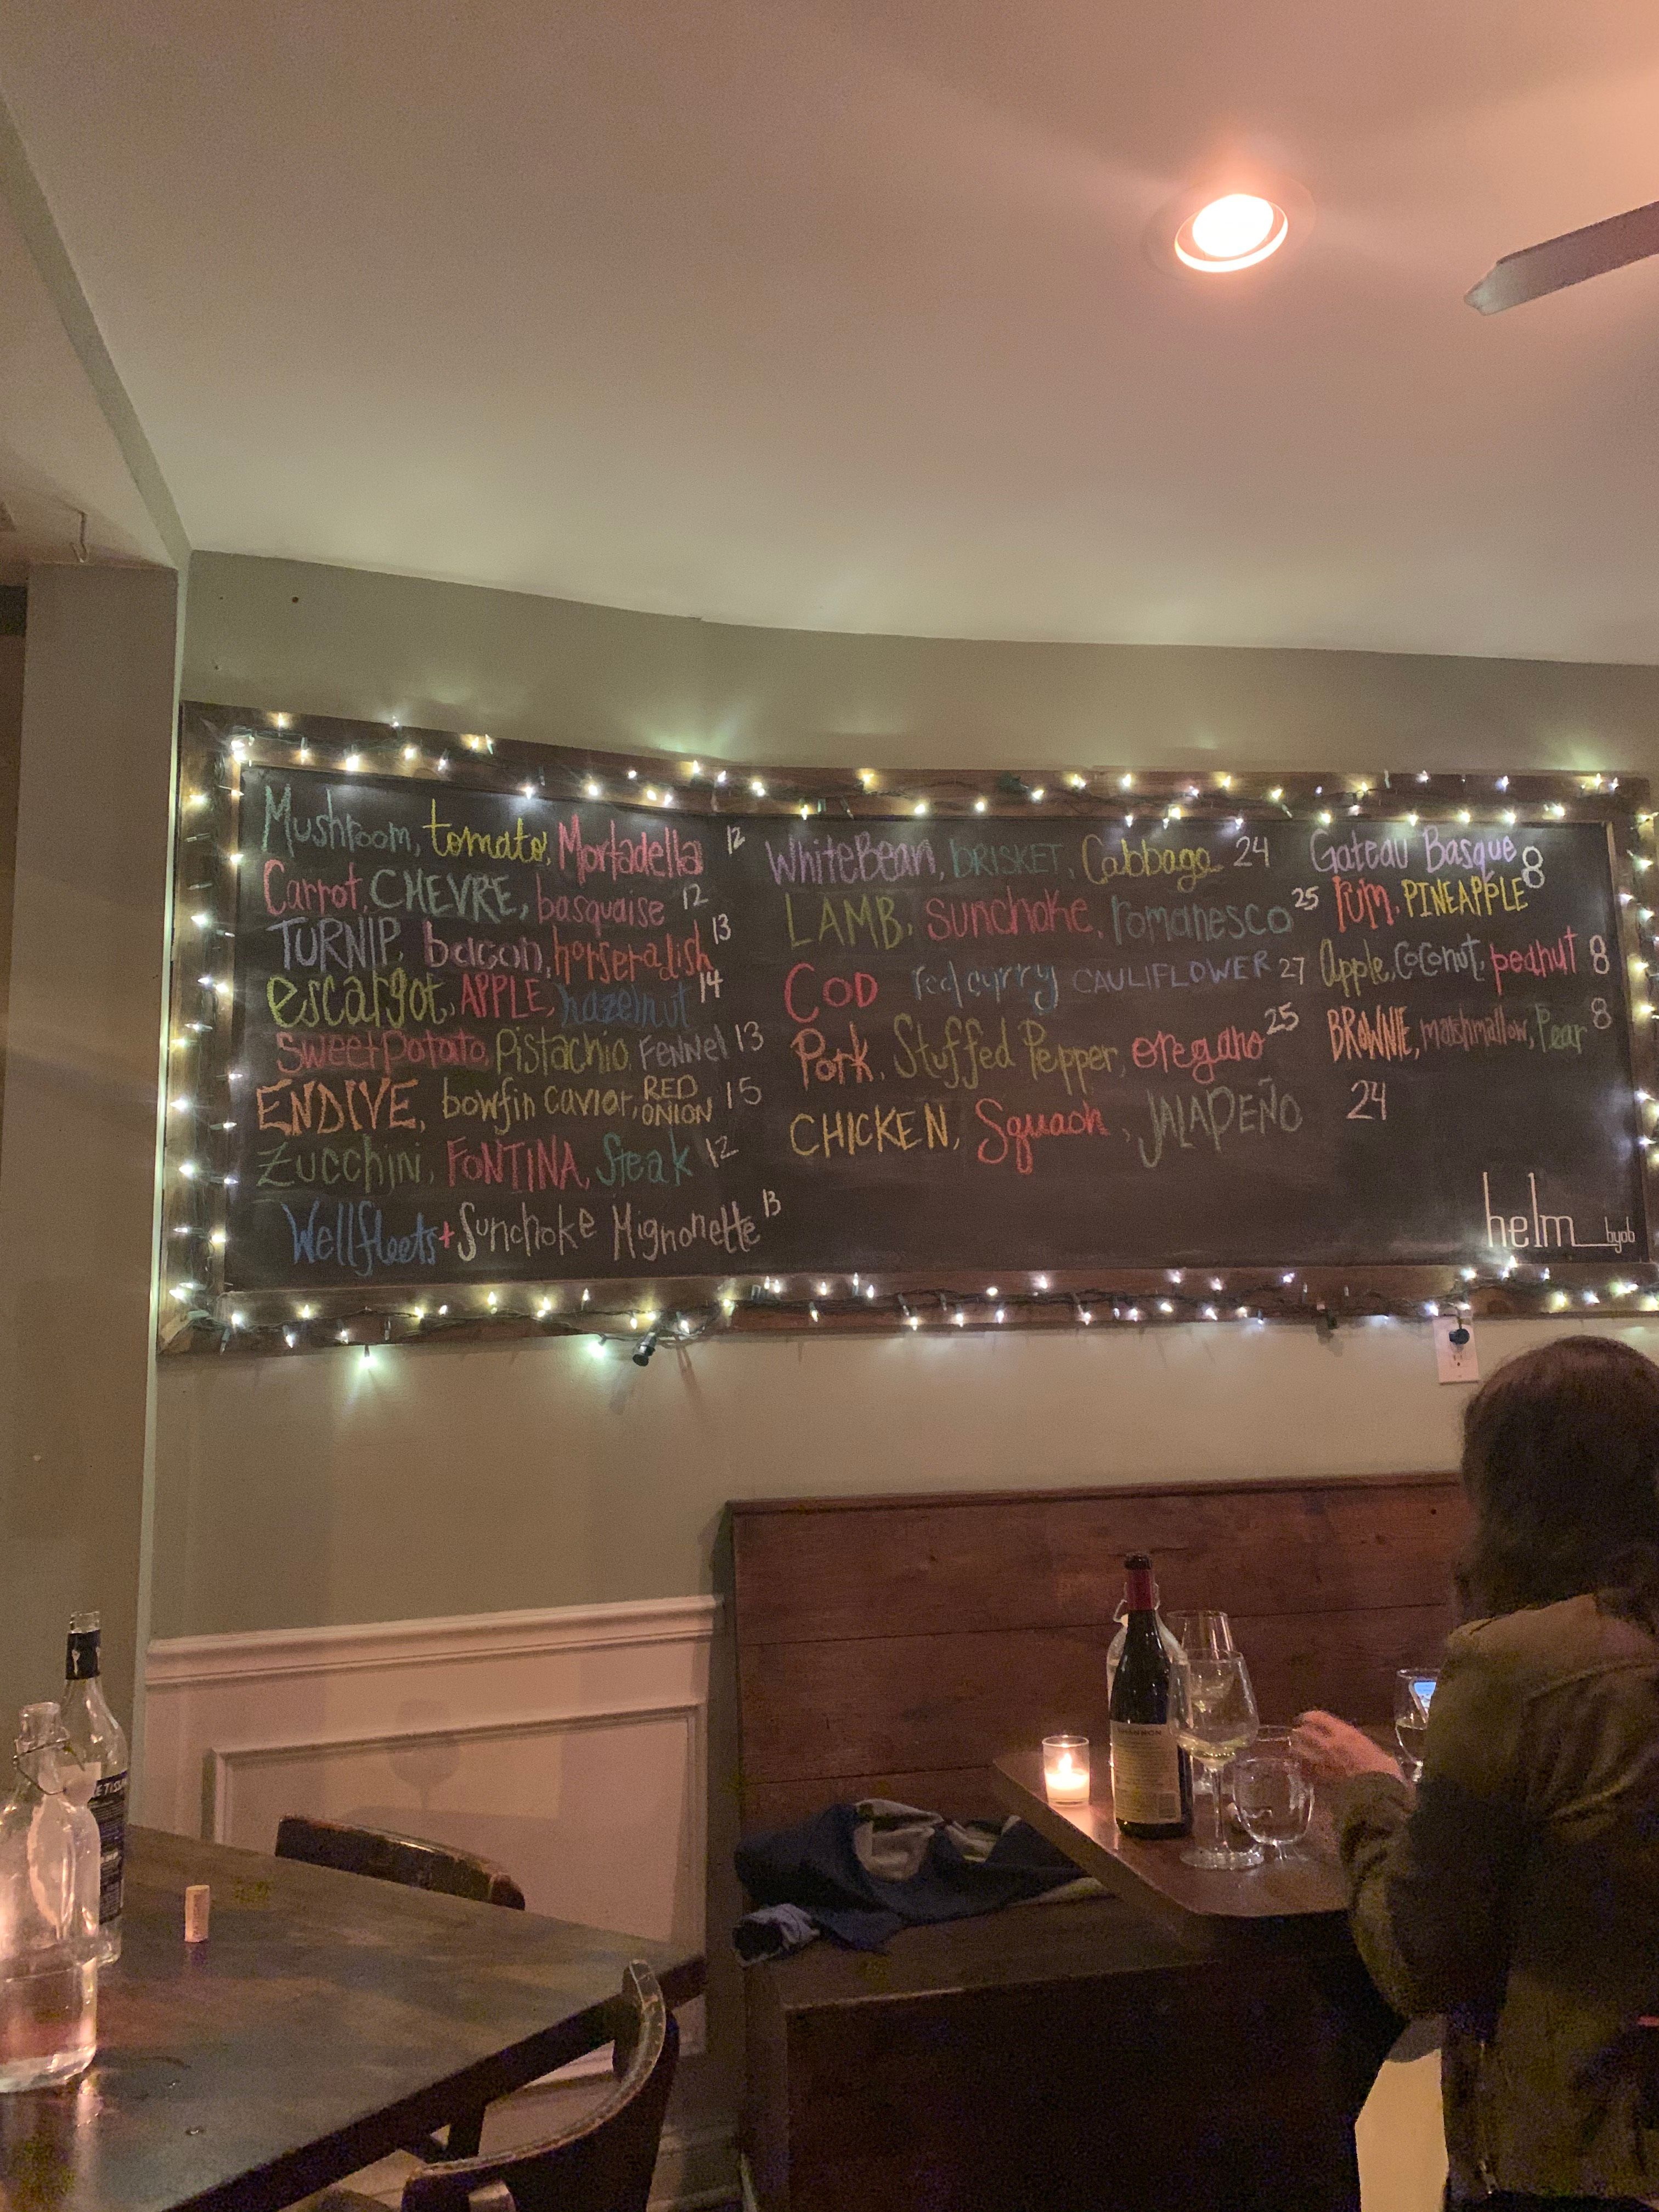 Mushroom, tomato, Mortadella 12
Carrot, CHEVRE, basquaise 12
TURNIP, bacon, horseradish 13
escargot, APPLE, hazelnut 14
Sweet potato, Pistachio, FENNEl 13
ENDIVE, bowfin caviar, RED ONION 15
Zucchini, FONTINA, Steak 12
Wellfleets + Sunchoke Mignonette 13
White Bean, BRISKET, Cabbage 24
LAMB, Sunchoke, romanesco 25
COD red curry CAULIFLOWER 27
Pork, Stuffed Pepper, oregano 25
CHICKEN, Squash, JALAPEÑO 24
Gateau Basque
rum, PINEAPPLE 8
Apple, coconut, peanut 8
BROWNIE, marshmallow, Pear 8
helm byob